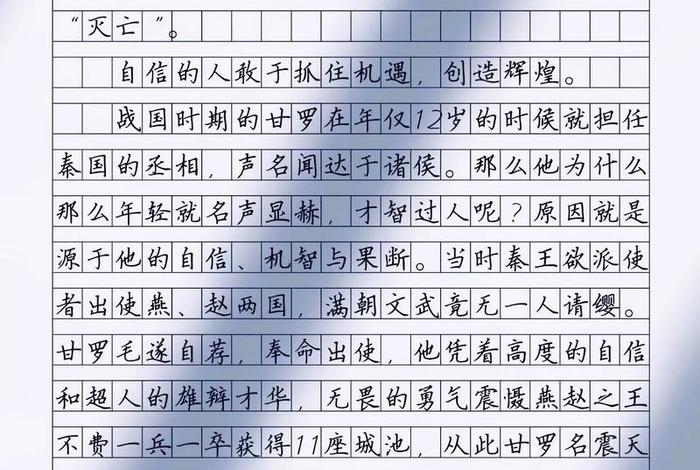 “灭亡”。
自信的人敢于抓住机遇，创造辉煌。
战国时期的甘罗在年仅12岁的时候就担任
秦国的丞相，声名闻达于诸侯。那么他为什么
那么年轻就名声显赫，才智过人呢？原因就是
源于他的自信、机智与果断。当时秦王欲派使
者出使燕、赵两国，满朝文武竟无一人请缨。
甘罗毛遂自荐，奉命出使，他凭着高度的自信
和超人的雄辩才华，无畏的勇气震慑燕赵之王
不费一兵一卒获得11座城池，从此甘罗名震天